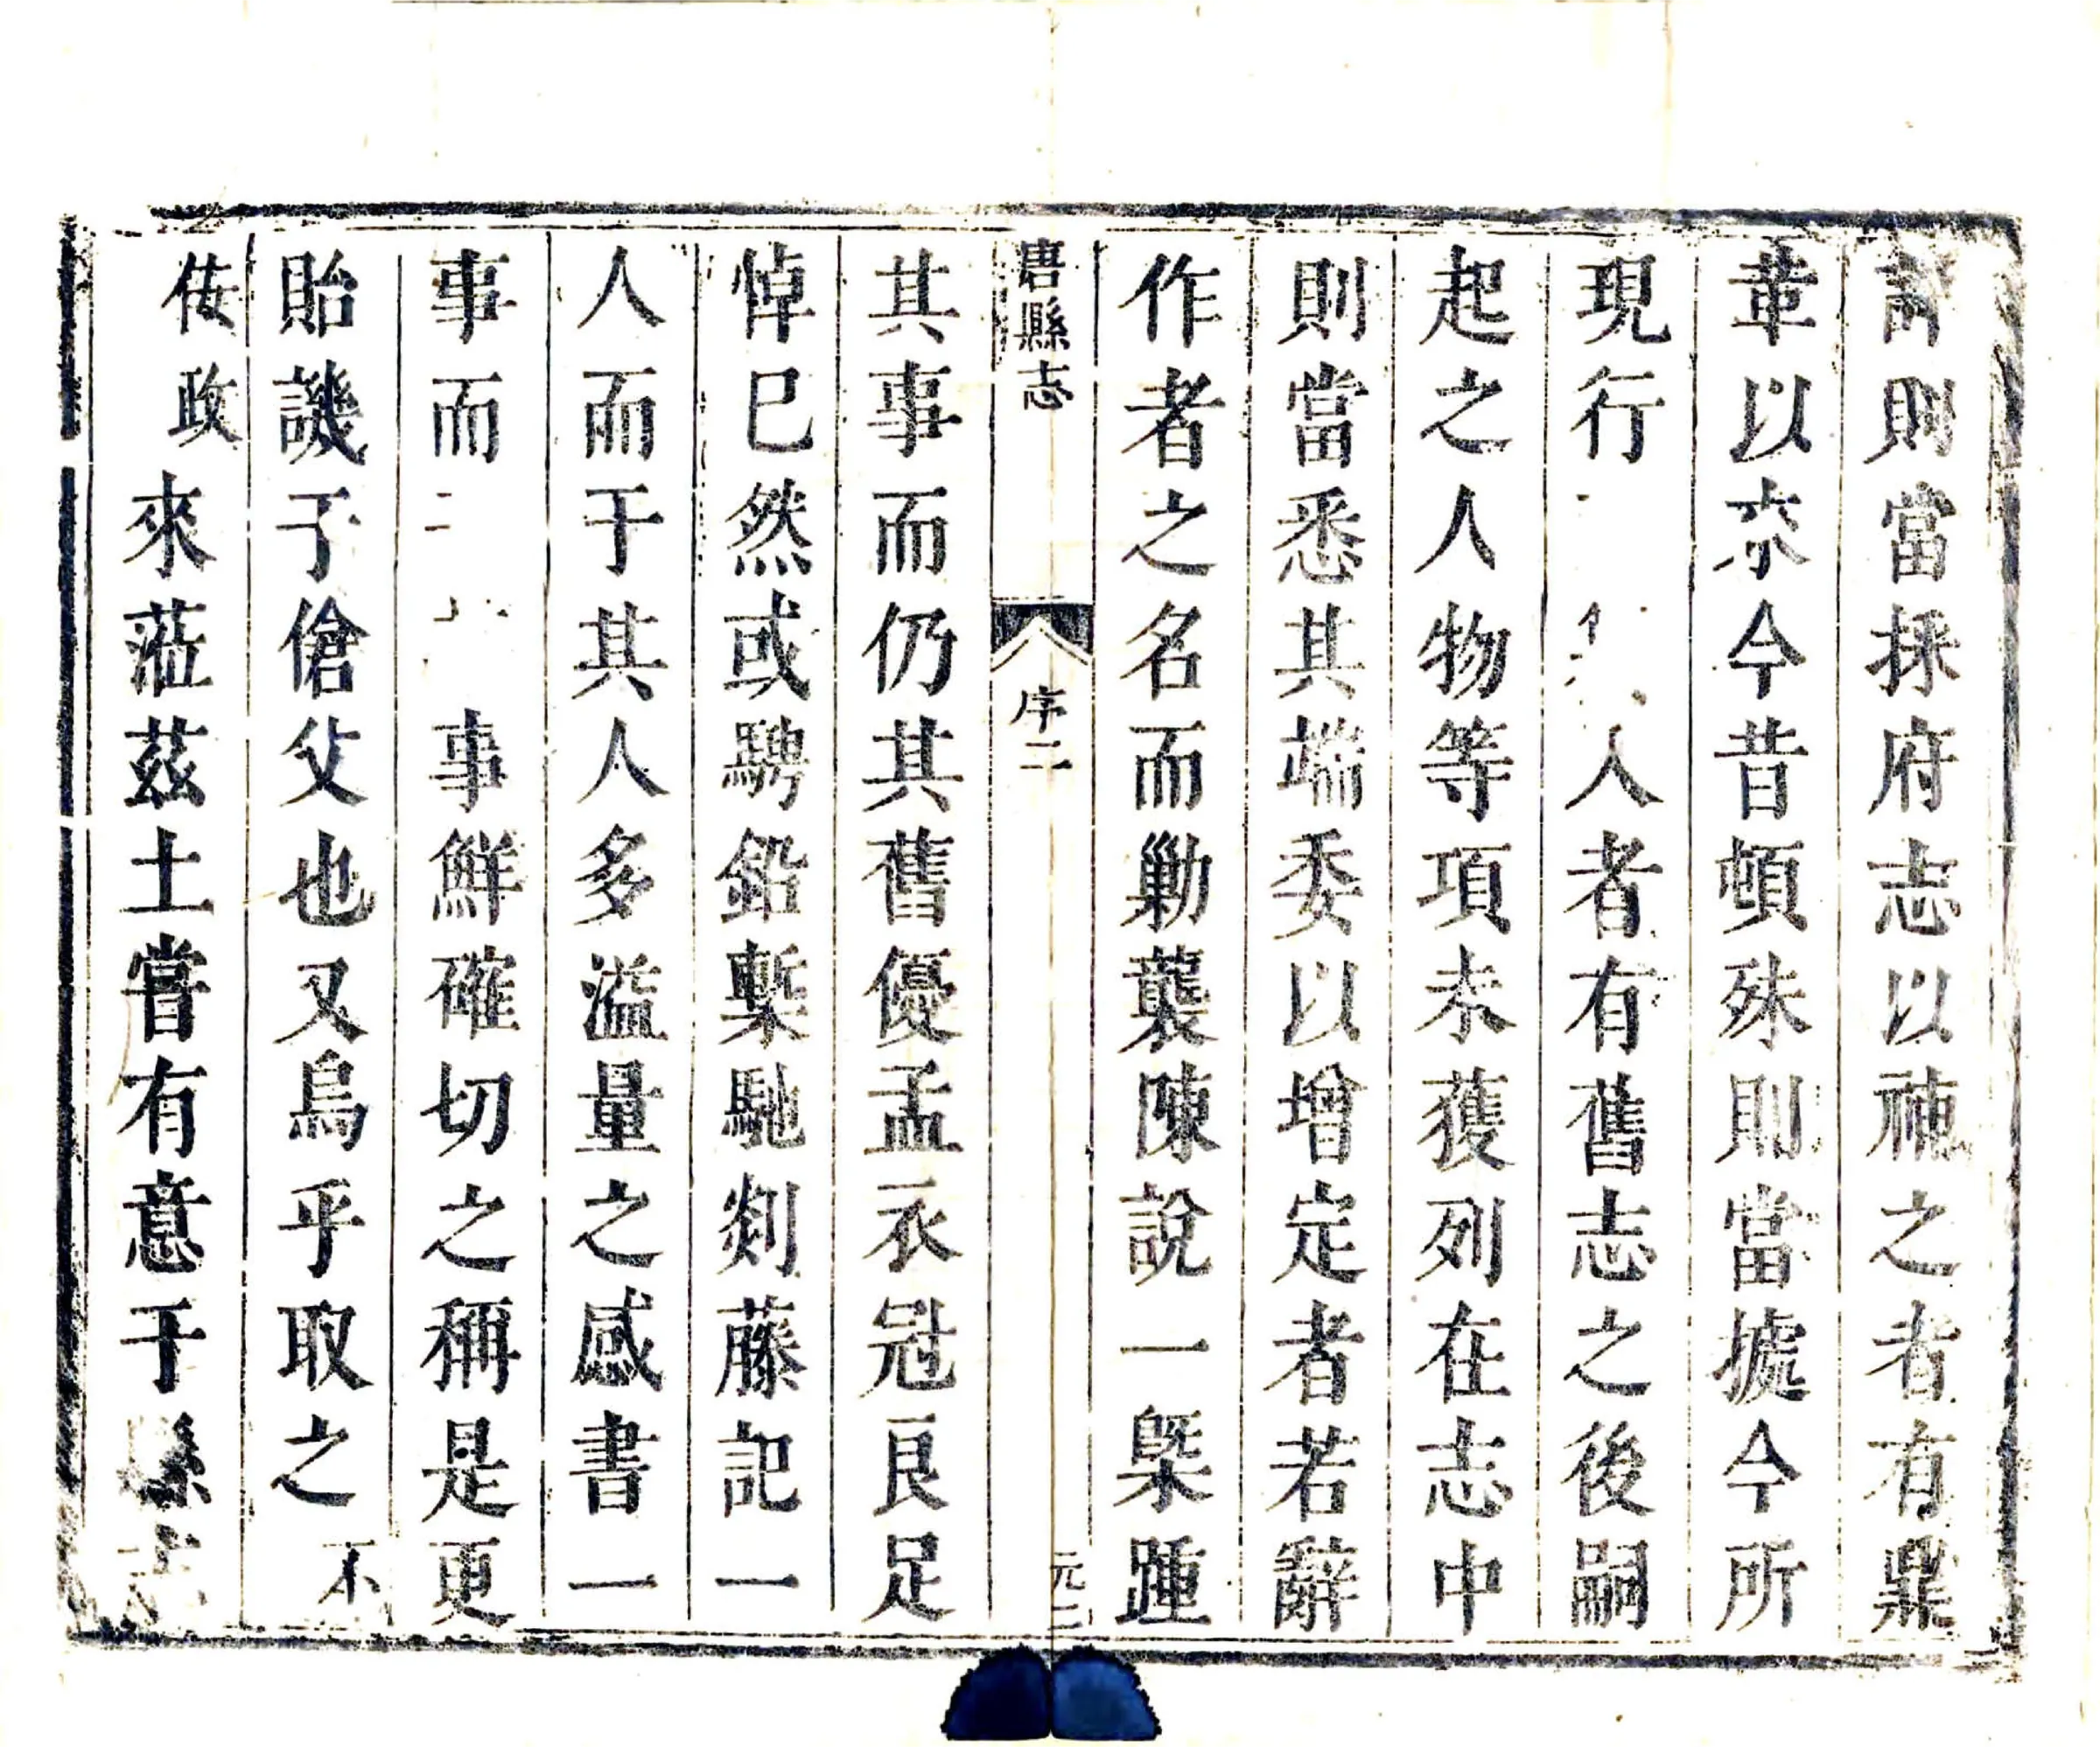 則當採府志以裨之者有鼎
革以來今昔頓殊則當㨿今所
現行人者有舊志之後嗣
起之人物等項未獲列在志中
則當悉其端委以增定者若辭
作者之名而勦襲陳說一槩踵
唐縣志 序二
其事而仍其舊優孟衣冠良足
悼已然或騁鉛槧馳剡藤記一
人而于其人多溢量之感書一
事而事鮮確切之稱是更
貽譏于傖父也又烏乎取之不
佞政來蒞茲土嘗有意于縣